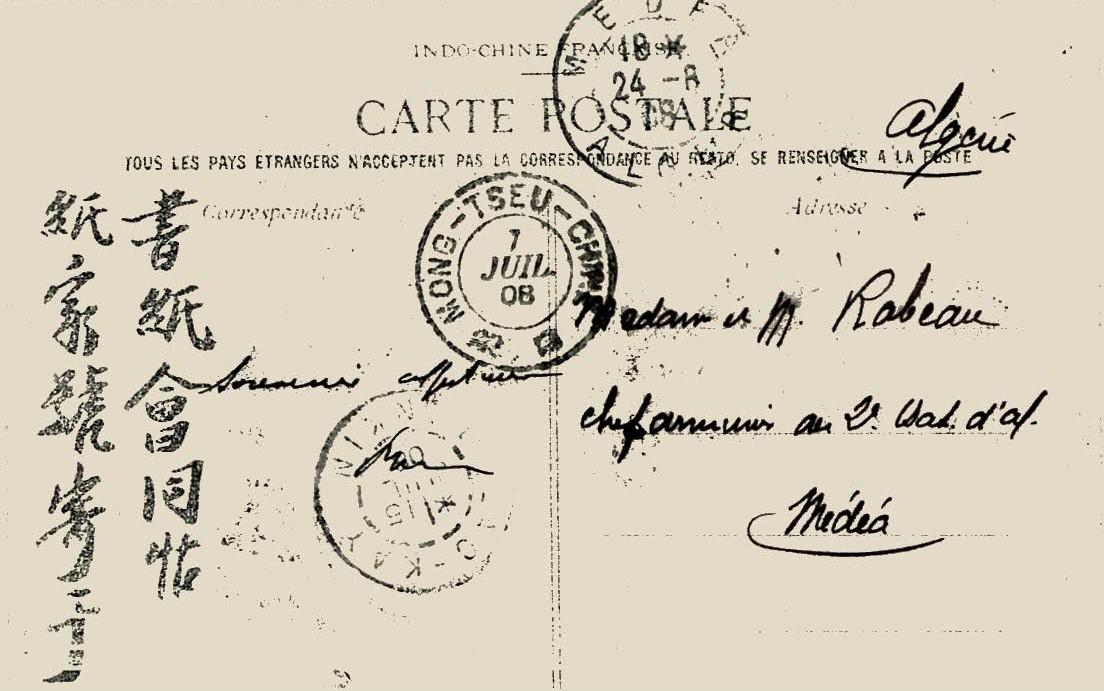 INDO-CHINE FRANÇAISE
CARTE POSTALE
TOUS LES PAYS ETRANGERS N'ACCEPTENT PAS LA CORRESPONDANCE AU RECTO. SE RENSEIGNER A LA POSTE
Correspondance
Adresse
Algérie
18
24 -8
08
MONG-TSEU-CHINE
1
JUIL
08
Madame et M. Rabeau
chef armurier au 2e Bat. d'af.
Médéa
Souvenir
書紙會同帖
紙家號寄于